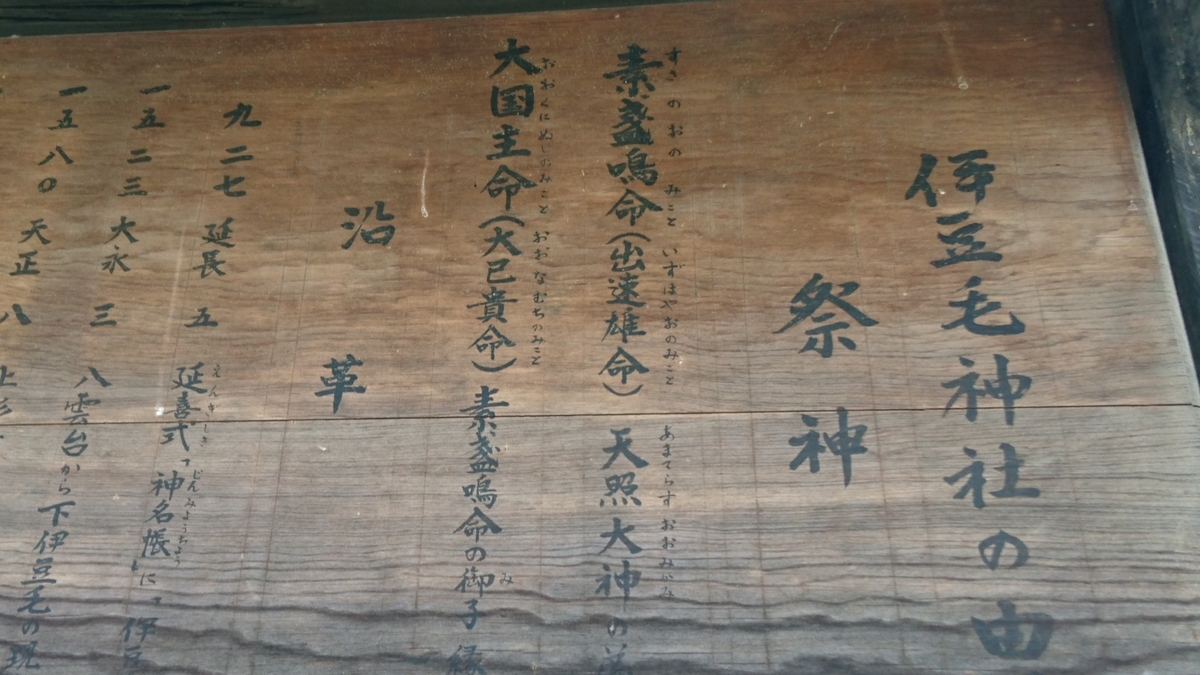 伊豆毛神社の由
祭神
素盞嗚命(出速雄命) 天照大神の
すさのおのみこと いずはやおのみこと あまてらすおおみかみ
大国主命(大已貴命) 素盞嗚命の御子 縁
おおくにぬしのみこと おおなむちのみこと み
沿革
九二七 延長 五 延喜式「神名帳」に「伊豆
えんぎしき じんみょうちょう
一五二三 大永 三 八雲台から下伊豆毛の現
一五八〇 天正 八